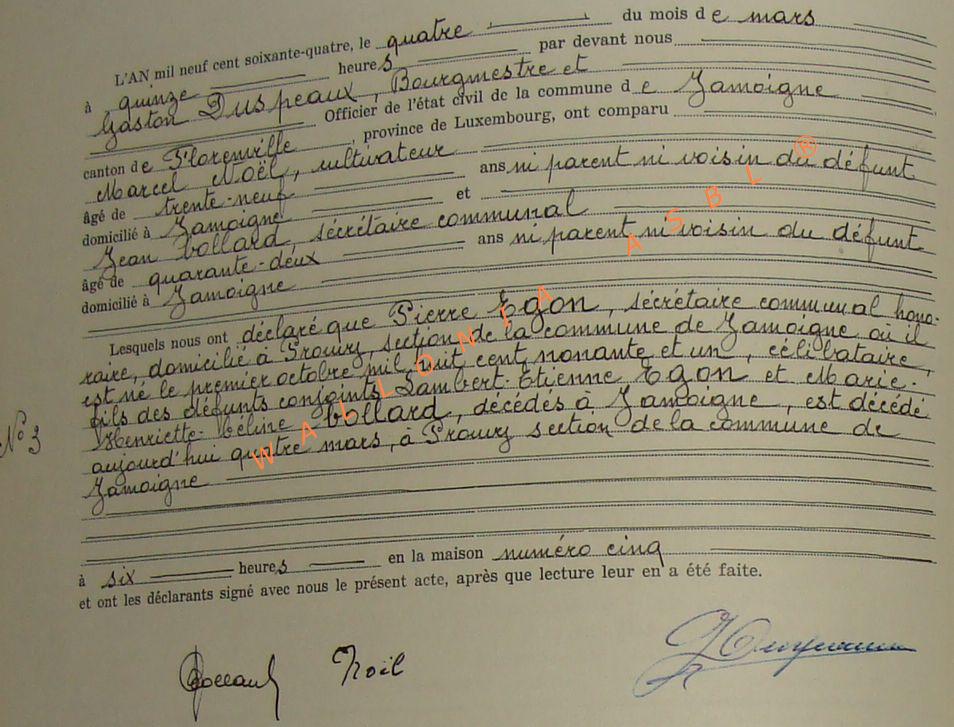 L'AN mil neuf cent soixante-quatre, le quatre du mois de mars
à quinze heures par devant nous
Gaston Duspeaux, Bourgmestre et
Officier de l'état civil de la commune de Jamoigne
canton de Florenville, province de Luxembourg, ont comparu
Marcel Noël, cultivateur
âgé de trente-neuf ans ni parent ni voisin du défunt
domicilié à Jamoigne et
Jean Collard, sécrétaire communal
âgé de quarante-deux ans ni parent ni voisin du défunt
domicilié à Jamoigne
Lesquels nous ont déclaré que Pierre Egon, sécrétaire communal hono-
raire, domicilié à Prouvy, section de la commune de Jamoigne où il
est né le premier octobre mil huit cent nonante et un, célibataire,
fils des défunts conjoints Lambert-Etienne Egon et Marie-
Henriette-Céline Collard, décédés à Jamoigne, est décédé
N° 3
aujourd'hui quatre mars, à Prouvy section de la commune de
Jamoigne
à six heures en la maison numéro cinq
et ont les déclarants signé avec nous le présent acte, après que lecture leur en a été faite.
Collard Noël
WALLONIA ASBL ®